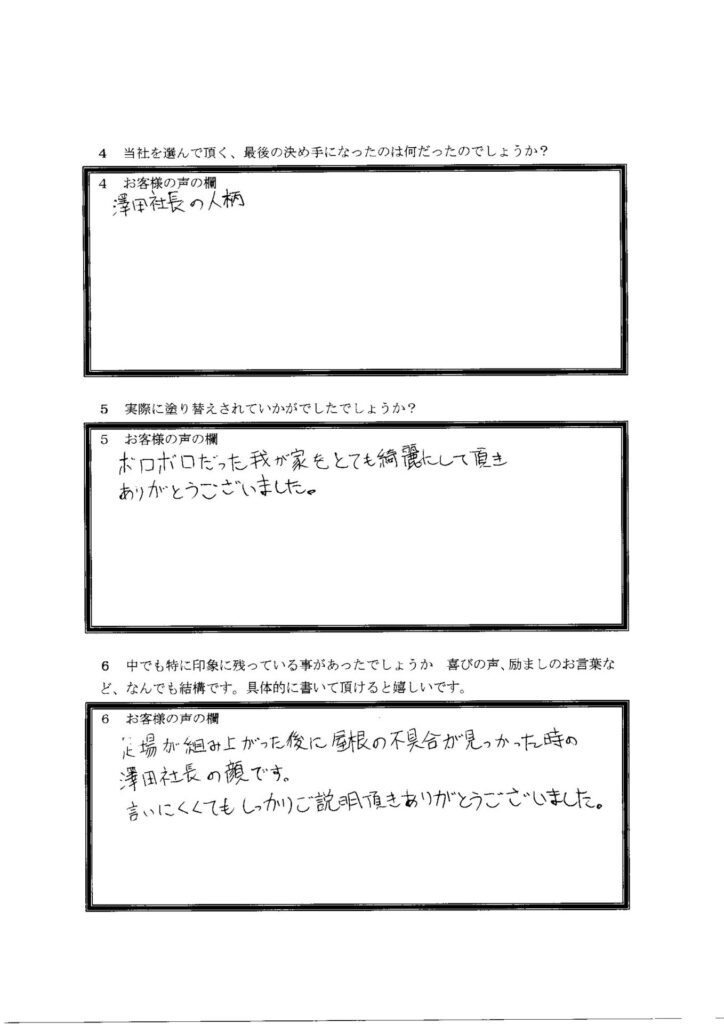 4 当社を選んで頂く、最後の決め手になったのは何だったのでしょうか？
4 お客様の声の欄
澤田社長の人柄
5 実際に塗り替えされていかがでしたでしょうか？
5 お客様の声の欄
ボロボロだった我が家をとても綺麗にして頂き
ありがとうございました。
6 中でも特に印象に残っている事があったでしょうか 喜びの声、励ましのお言葉な
ど、なんでも結構です。具体的に書いて頂けると嬉しいです。
6 お客様の声の欄
足場が組み上がった後に屋根の不具合が見つかった時の
澤田社長の顔です。
言いにくくてもしっかりご説明頂きありがとうございました。